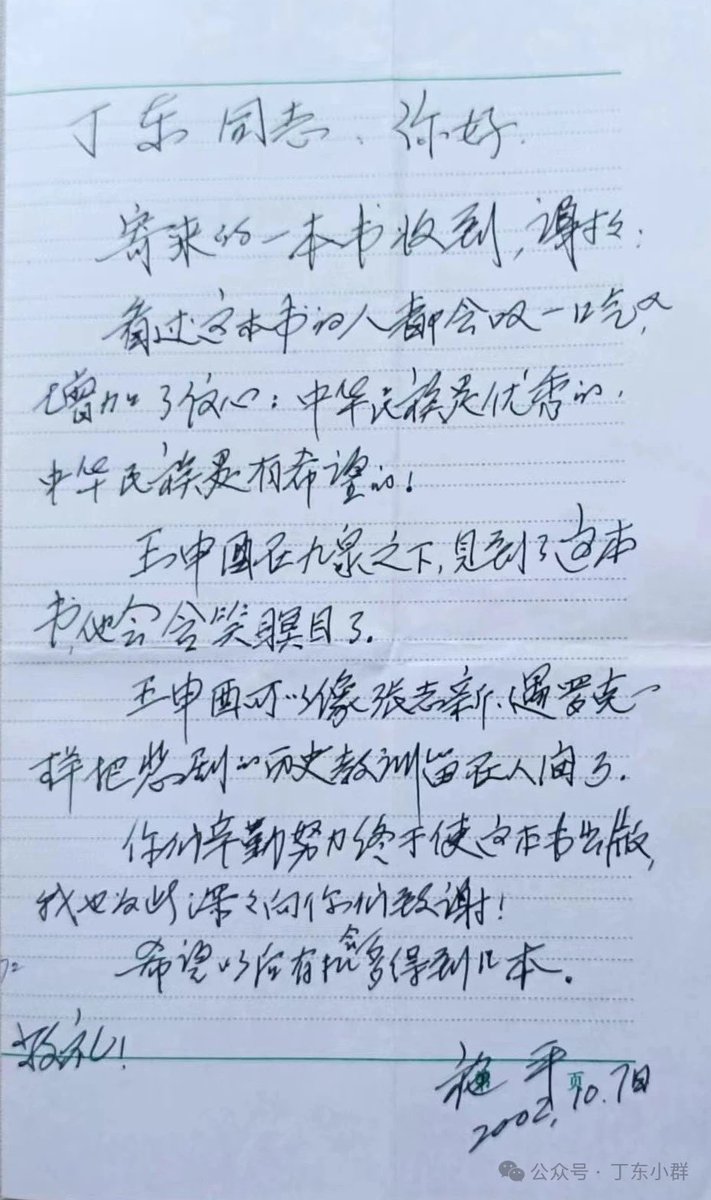 丁东同志、你好.
寄来的一本书收到，谢谢;
看过这本书的人都会叹一口气,又
增加了信心：中华民族是优秀的，
中华民族是有希望的！
王申酉在九泉之下,见到了这本
书,他会含笑瞑目了.
王申酉可以像张志新、遇罗克一
样把悲剧的历史教训留在人间了.
你们辛勤努力终于使这本书出版,
我也为此深々向你们致谢！
希望以后有机会多得到几本。
敬礼！
施平
页
2002.10.7日
公众号·丁东小群